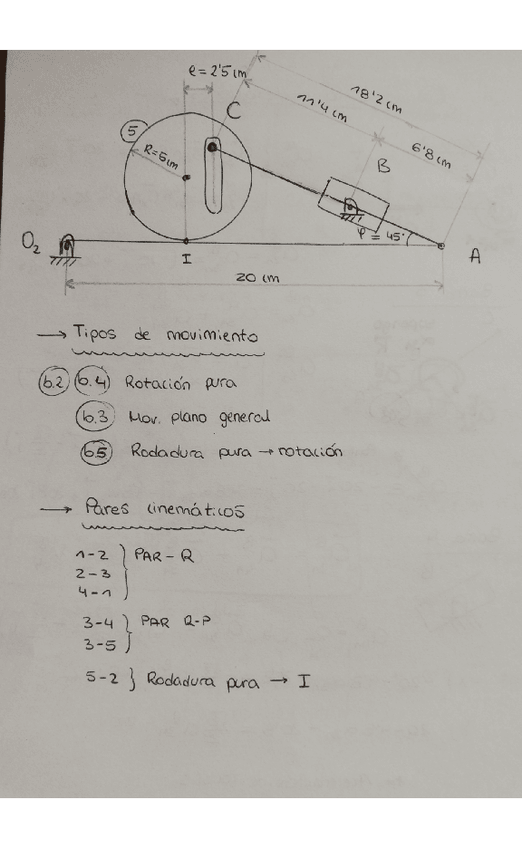 e = 2'5 cm
C
18'2 cm
11'4 cm
5
R=5cm
6'8 cm
B
φ = 45°
O2
I
A
20 cm
→ Tipos de movimiento
b.2 b.4 Rotación pura
b.3 Mov. plano general
b5 Rodadura pura → rotación
→ Pares cinemáticos
1-2 } PAR-R
2-3
4-1
3-4 } PAR R-P
3-5
5-2 } Rodadura pura → I